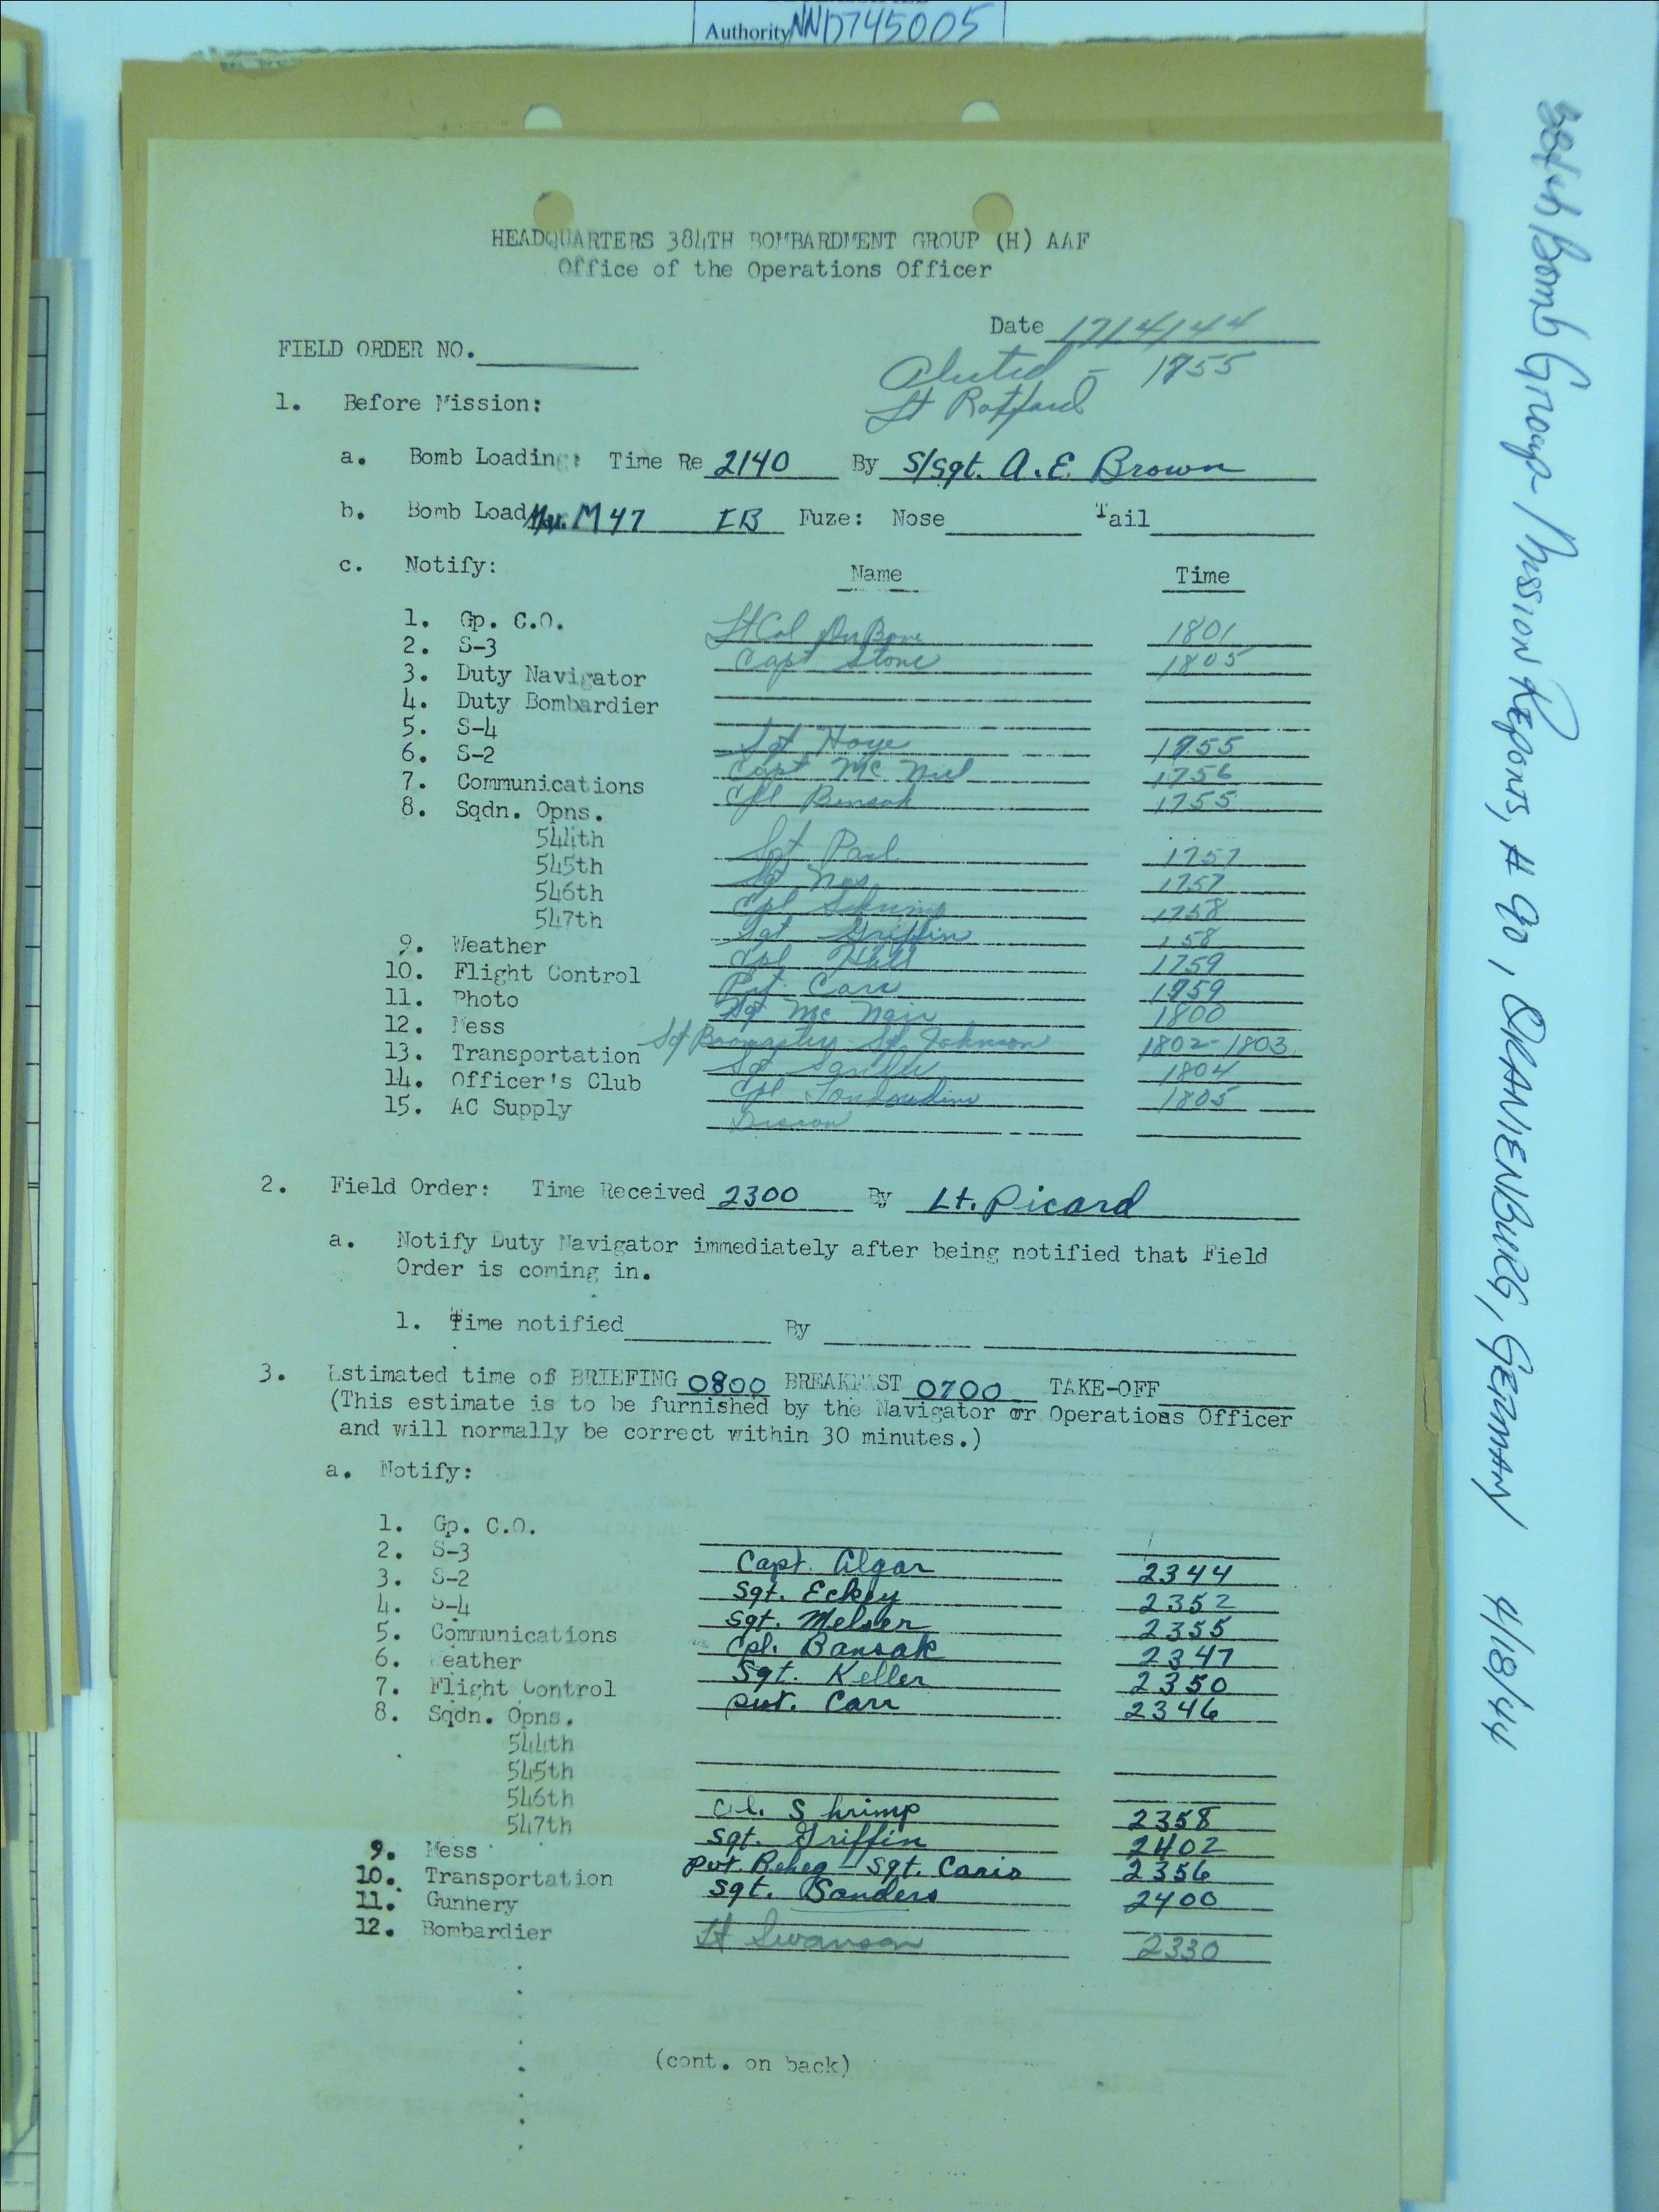 Authority NND745005
HEADQUARTERS 384TH BOMBARDMENT GROUP (H) AAF
Office of the Operations Officer
Date 17/4/44
FIELD ORDER NO.
Alerted - 1755
Lt
1. Before Mission:
a. Bomb Loading: Time Re 2140 By S/Sgt. A.E. Brown
b. Bomb Load M47 IB Fuze: Nose Tail
c. Notify: Name Time
1. Gp. C.O. Lt Col 1801
2. S-3 Capt Stone 1805
3. Duty Navigator
4. Duty Bombardier
5. S-4 Sgt Hoye 1755
6. S-2 Capt Mc Niel 1756
7. Communications Cpl Bansak 1755
8. Sqdn. Opns.
544th Sgt Paul 1757
545th Sgt 1757
546th Cpl Shrimp 1758
547th Sgt Griffin 158
9. Weather Cpl Hall 1759
10. Flight Control Pvt. Carr 1759
11. Photo Sgt Mc Nair 1800
12. Mess Sgt Sgt. Johnson 1802-1803
13. Transportation Sgt 1804
14. Officer's Club Cpl 1805
15. AC Supply
2. Field Order: Time Received 2300 By Lt. Picard
a. Notify Duty Navigator immediately after being notified that Field
Order is coming in.
1. Time notified By
3. Estimated time of BRIEFING 0800 BREAKFAST 0700 TAKE-OFF
(This estimate is to be furnished by the Navigator or Operations Officer
and will normally be correct within 30 minutes.)
a. Notify:
1. Gp. C.O.
2. S-3 Capt. Algar 2344
3. S-2 Sgt. Eckey 2352
4. S-4 Sgt. Melser 2355
5. Communications Cpl. Bansak 2347
6. Weather Sgt. Keller 2350
7. Flight Control pvt. Carr 2346
8. Sqdn. Opns.
544th
545th
546th Cpl. Shrimp 2358
547th Sgt. Griffin 2402
9. Mess pvt. - Sgt. 2356
10. Transportation Sgt. Sanders 2400
11. Gunnery
12. Bombardier Lt Swanson 2330
(cont. on back)
384th Bomb Group Mission Reports, # 90, ORANIENBURG, GERMANY 4/18/44